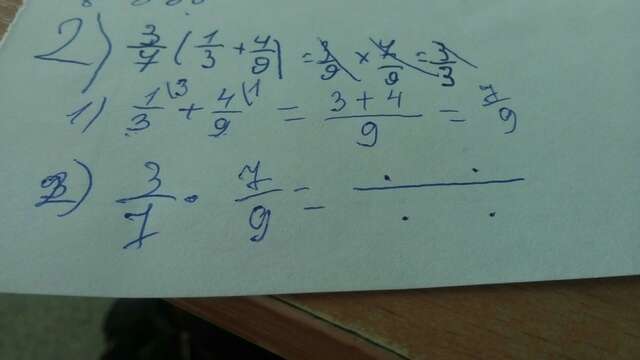 2) 3/7 (1/3 + 4/9) =
1) 1/3 \3 + 4/9 \1 = 3+4/9 = 7/9
2) 3/7 · 7/9 = · · / · ·